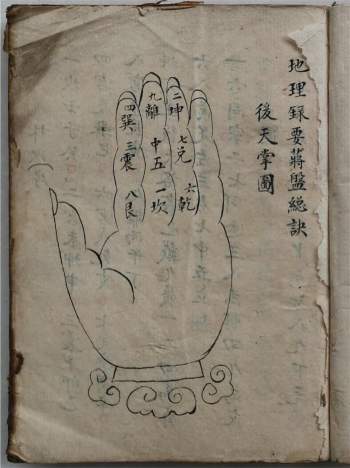 地理錄要蔣盤總訣
後天掌圖
二坤
七兌
六乾
九離
中五
一坎
四巽
三震
八艮